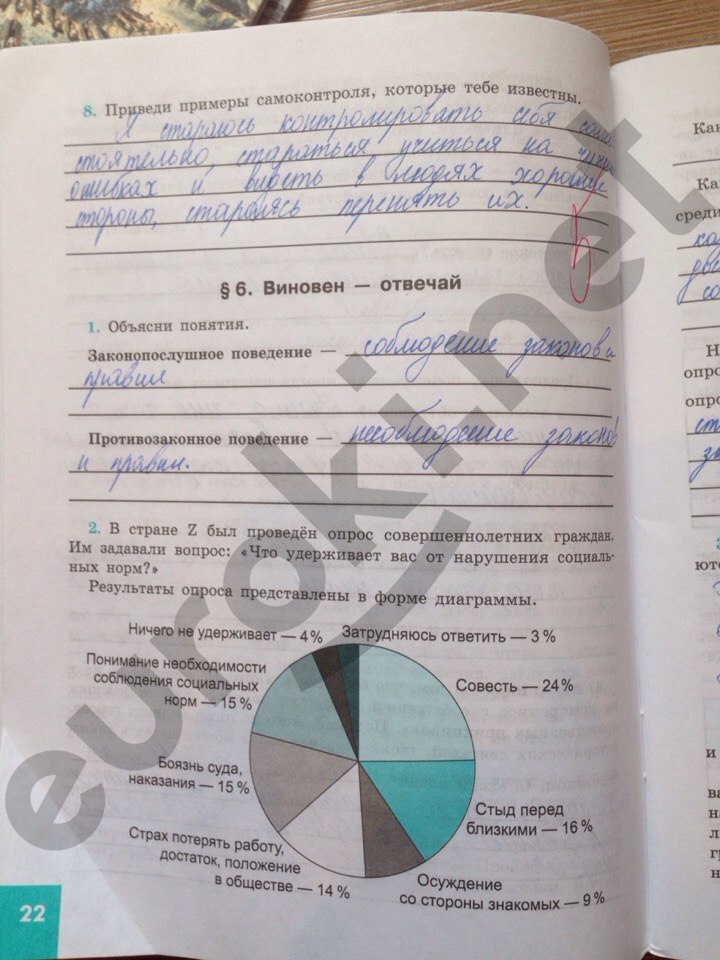 8. Приведи примеры самоконтроля, которые тебе известны.
Я стараюсь контролировать себя само-
стоятельно, стараться учиться на чужих
ошибках и видеть в людях хорошие
стороны, стараясь перенять их.
§ 6. Виновен — отвечай
1. Объясни понятия.
Законопослушное поведение — соблюдение законов и
правил
Противозаконное поведение — несоблюдение законов
и правил.
2. В стране Z был проведён опрос совершеннолетних граждан.
Им задавали вопрос: «Что удерживает вас от нарушения социаль-
ных норм?»
Результаты опроса представлены в форме диаграммы.
Ничего не удерживает — 4 %
Затрудняюсь ответить — 3 %
Понимание необходимости
соблюдения социальных
норм — 15 %
Совесть — 24 %
Боязнь суда,
наказания — 15 %
Стыд перед
близкими — 16 %
Страх потерять работу,
достаток, положение
в обществе — 14 %
Осуждение
со стороны знакомых — 9 %
22
euroki.net
Как
Ка
среди
ка
два
со
Н
опро
опро
ст
за
ют
и
ва
на
л
гр
н